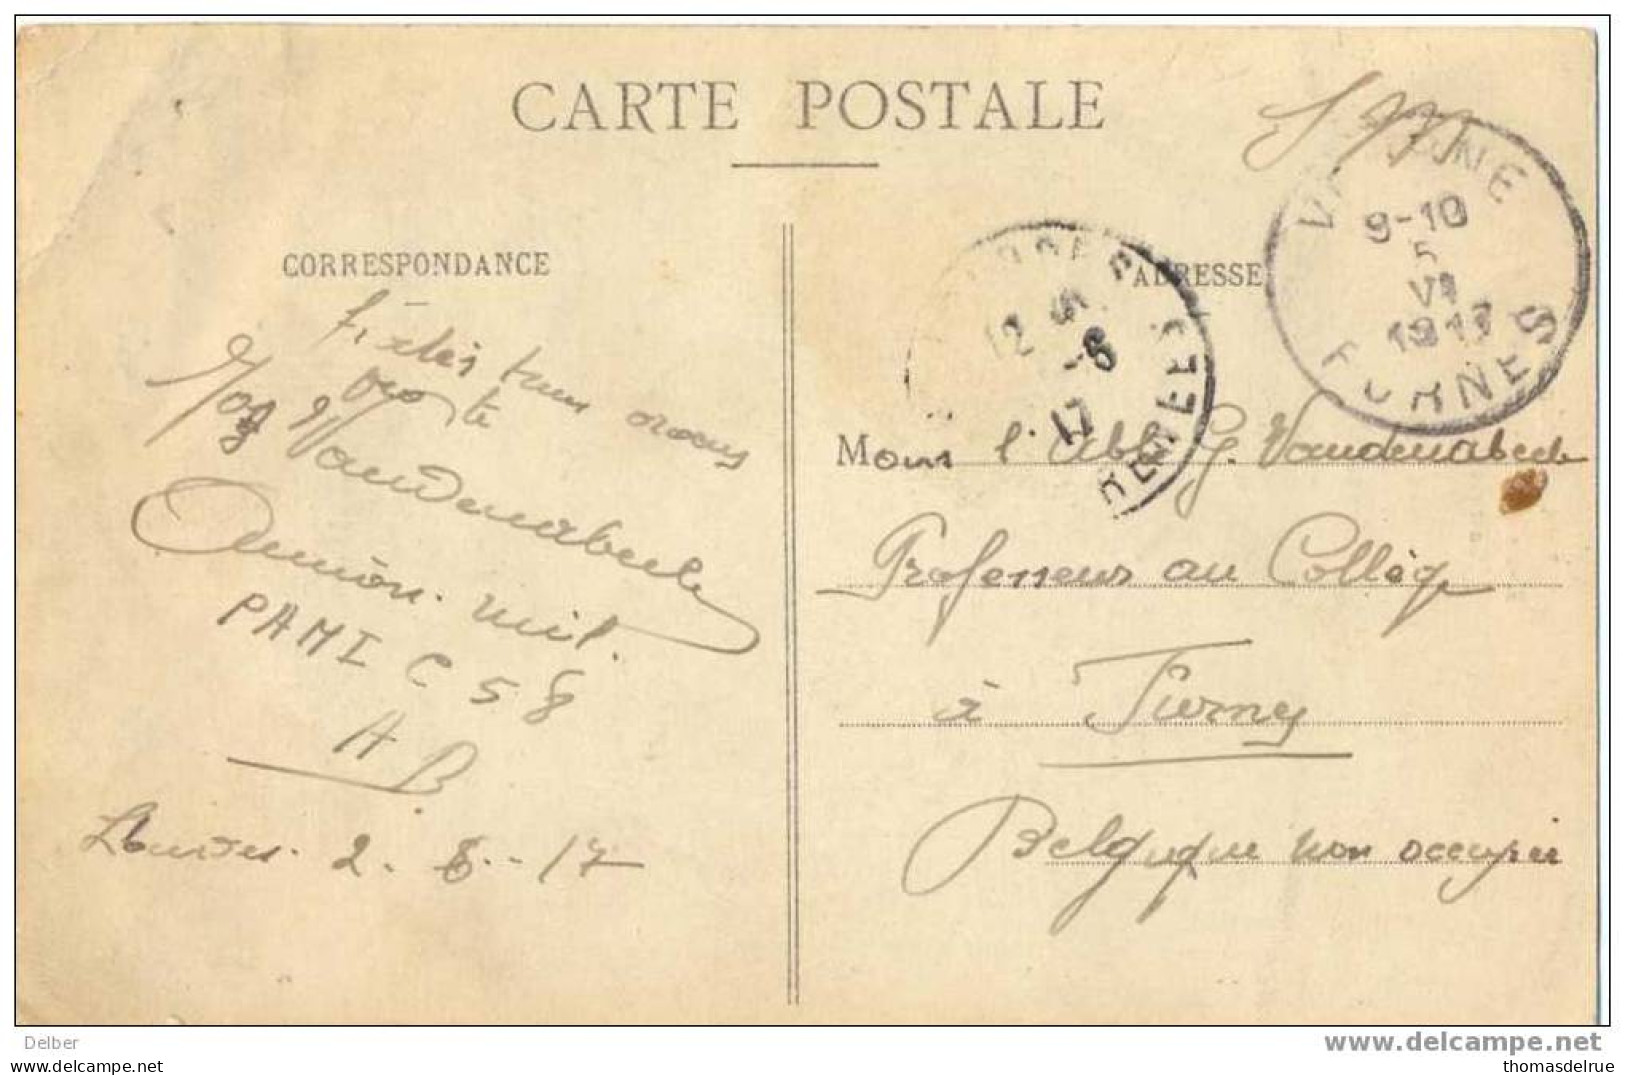 CARTE POSTALE
S.M.
VEURNE
9-10
5
VI
1917
FURNES
CORRESPONDANCE
ADRESSE
12
5-6
17
PYRÉNÉES
J. Vandenabeele
Aumôn. mil.
PAMI C 58
A B.
Lourdes. 2. 6. 17
Mons l'abbé G. Vandenabeele
Professeur au Collège
à Furnes
Belgique non occupée
Delber
www.delcampe.net
posté par
thomasdelrue